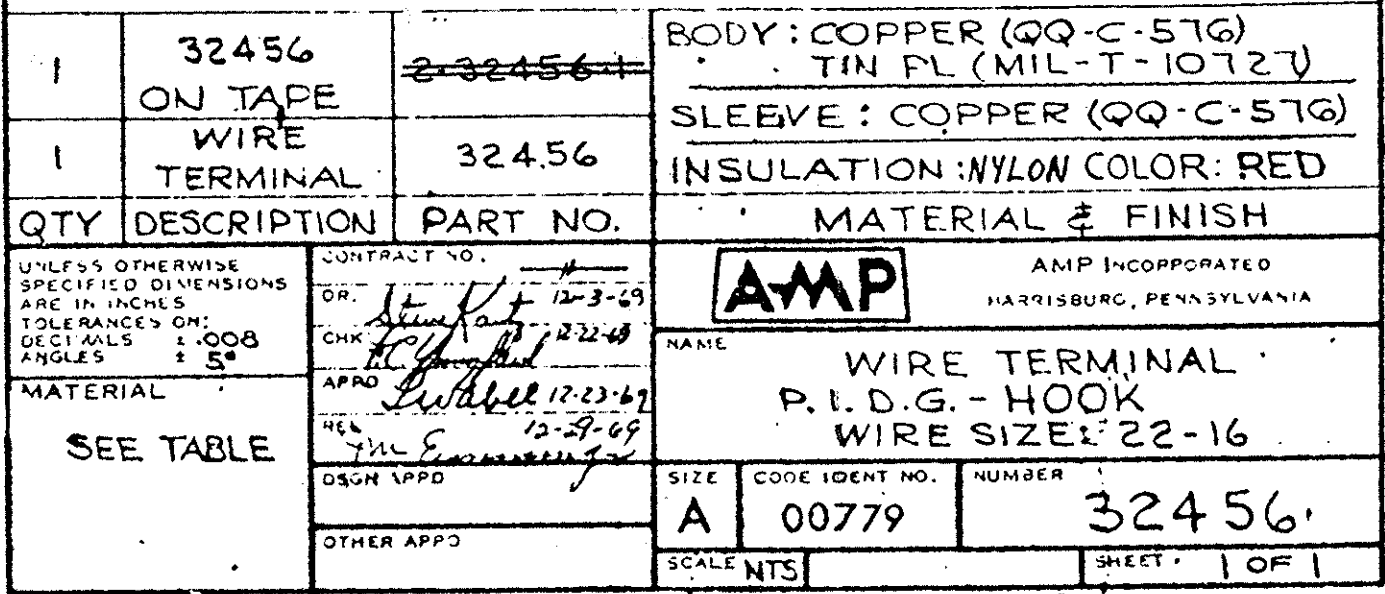 1 32456 ON TAPE 2-32456-1
1 WIRE TERMINAL 32456
QTY DESCRIPTION PART NO.
BODY: COPPER (QQ-C-576)
TIN PL (MIL-T-10727)
SLEEVE: COPPER (QQ-C-576)
INSULATION: NYLON COLOR: RED
MATERIAL & FINISH
UNLESS OTHERWISE
SPECIFIED DIMENSIONS
ARE IN INCHES
TOLERANCES ON:
DECIMALS ± .008
ANGLES ± 5°
MATERIAL
SEE TABLE
CONTRACT NO.
DR. 12-3-69
CHK 12-22-69
APPD 12-23-69
REL 12-29-69
DSGN APPD
OTHER APPD
AMP
AMP INCORPORATED
HARRISBURG, PENNSYLVANIA
NAME
WIRE TERMINAL
P.I.D.G. - HOOK
WIRE SIZE: 22-16
SIZE
A
CODE IDENT NO.
00779
NUMBER
32456
SCALE NTS
SHEET 1 OF 1